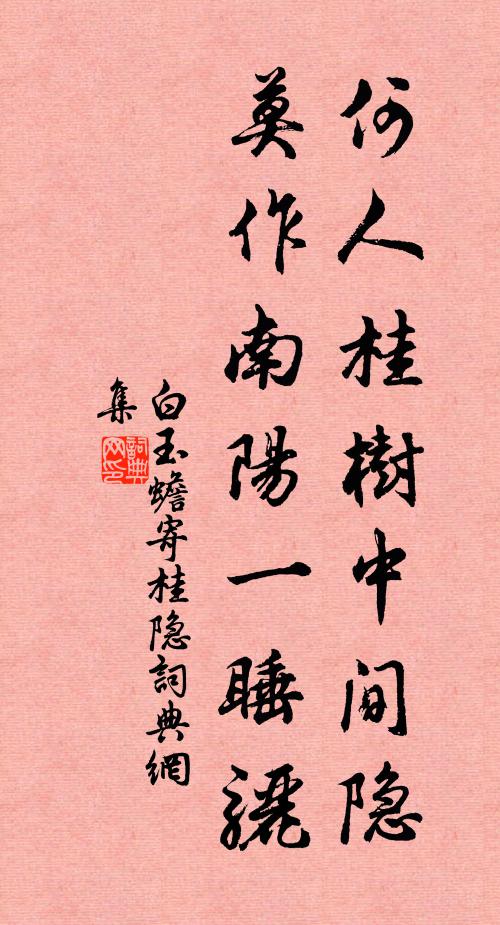 何人桂樹中间隐
莫作南陽一睡驪
白玉蟾寄桂隐詞典網
集
詞典
网印